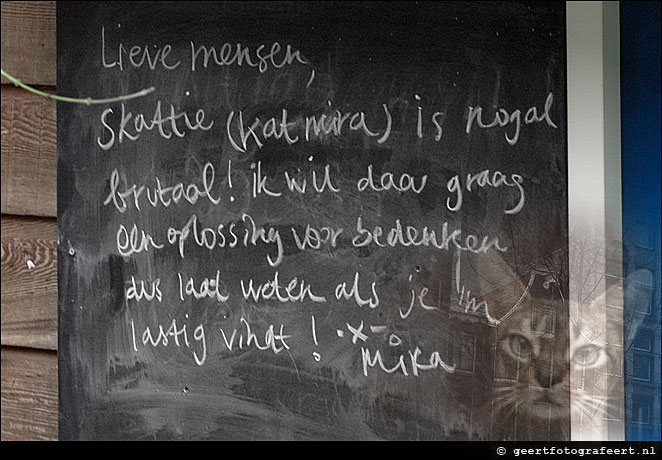 Lieve mensen,
Skattie (kat mira) is nogal
brutaal! ik wil daar graag
een oplossing voor bedenken
dus laat weten als je 'm
lastig vindt! -x-
Mika
© geertfotografeert.nl